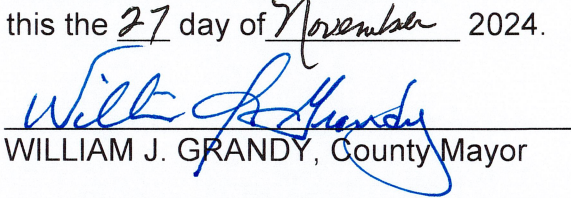 this the 27 day of November 2024.
William J. Grandy
WILLIAM J. GRANDY, County Mayor